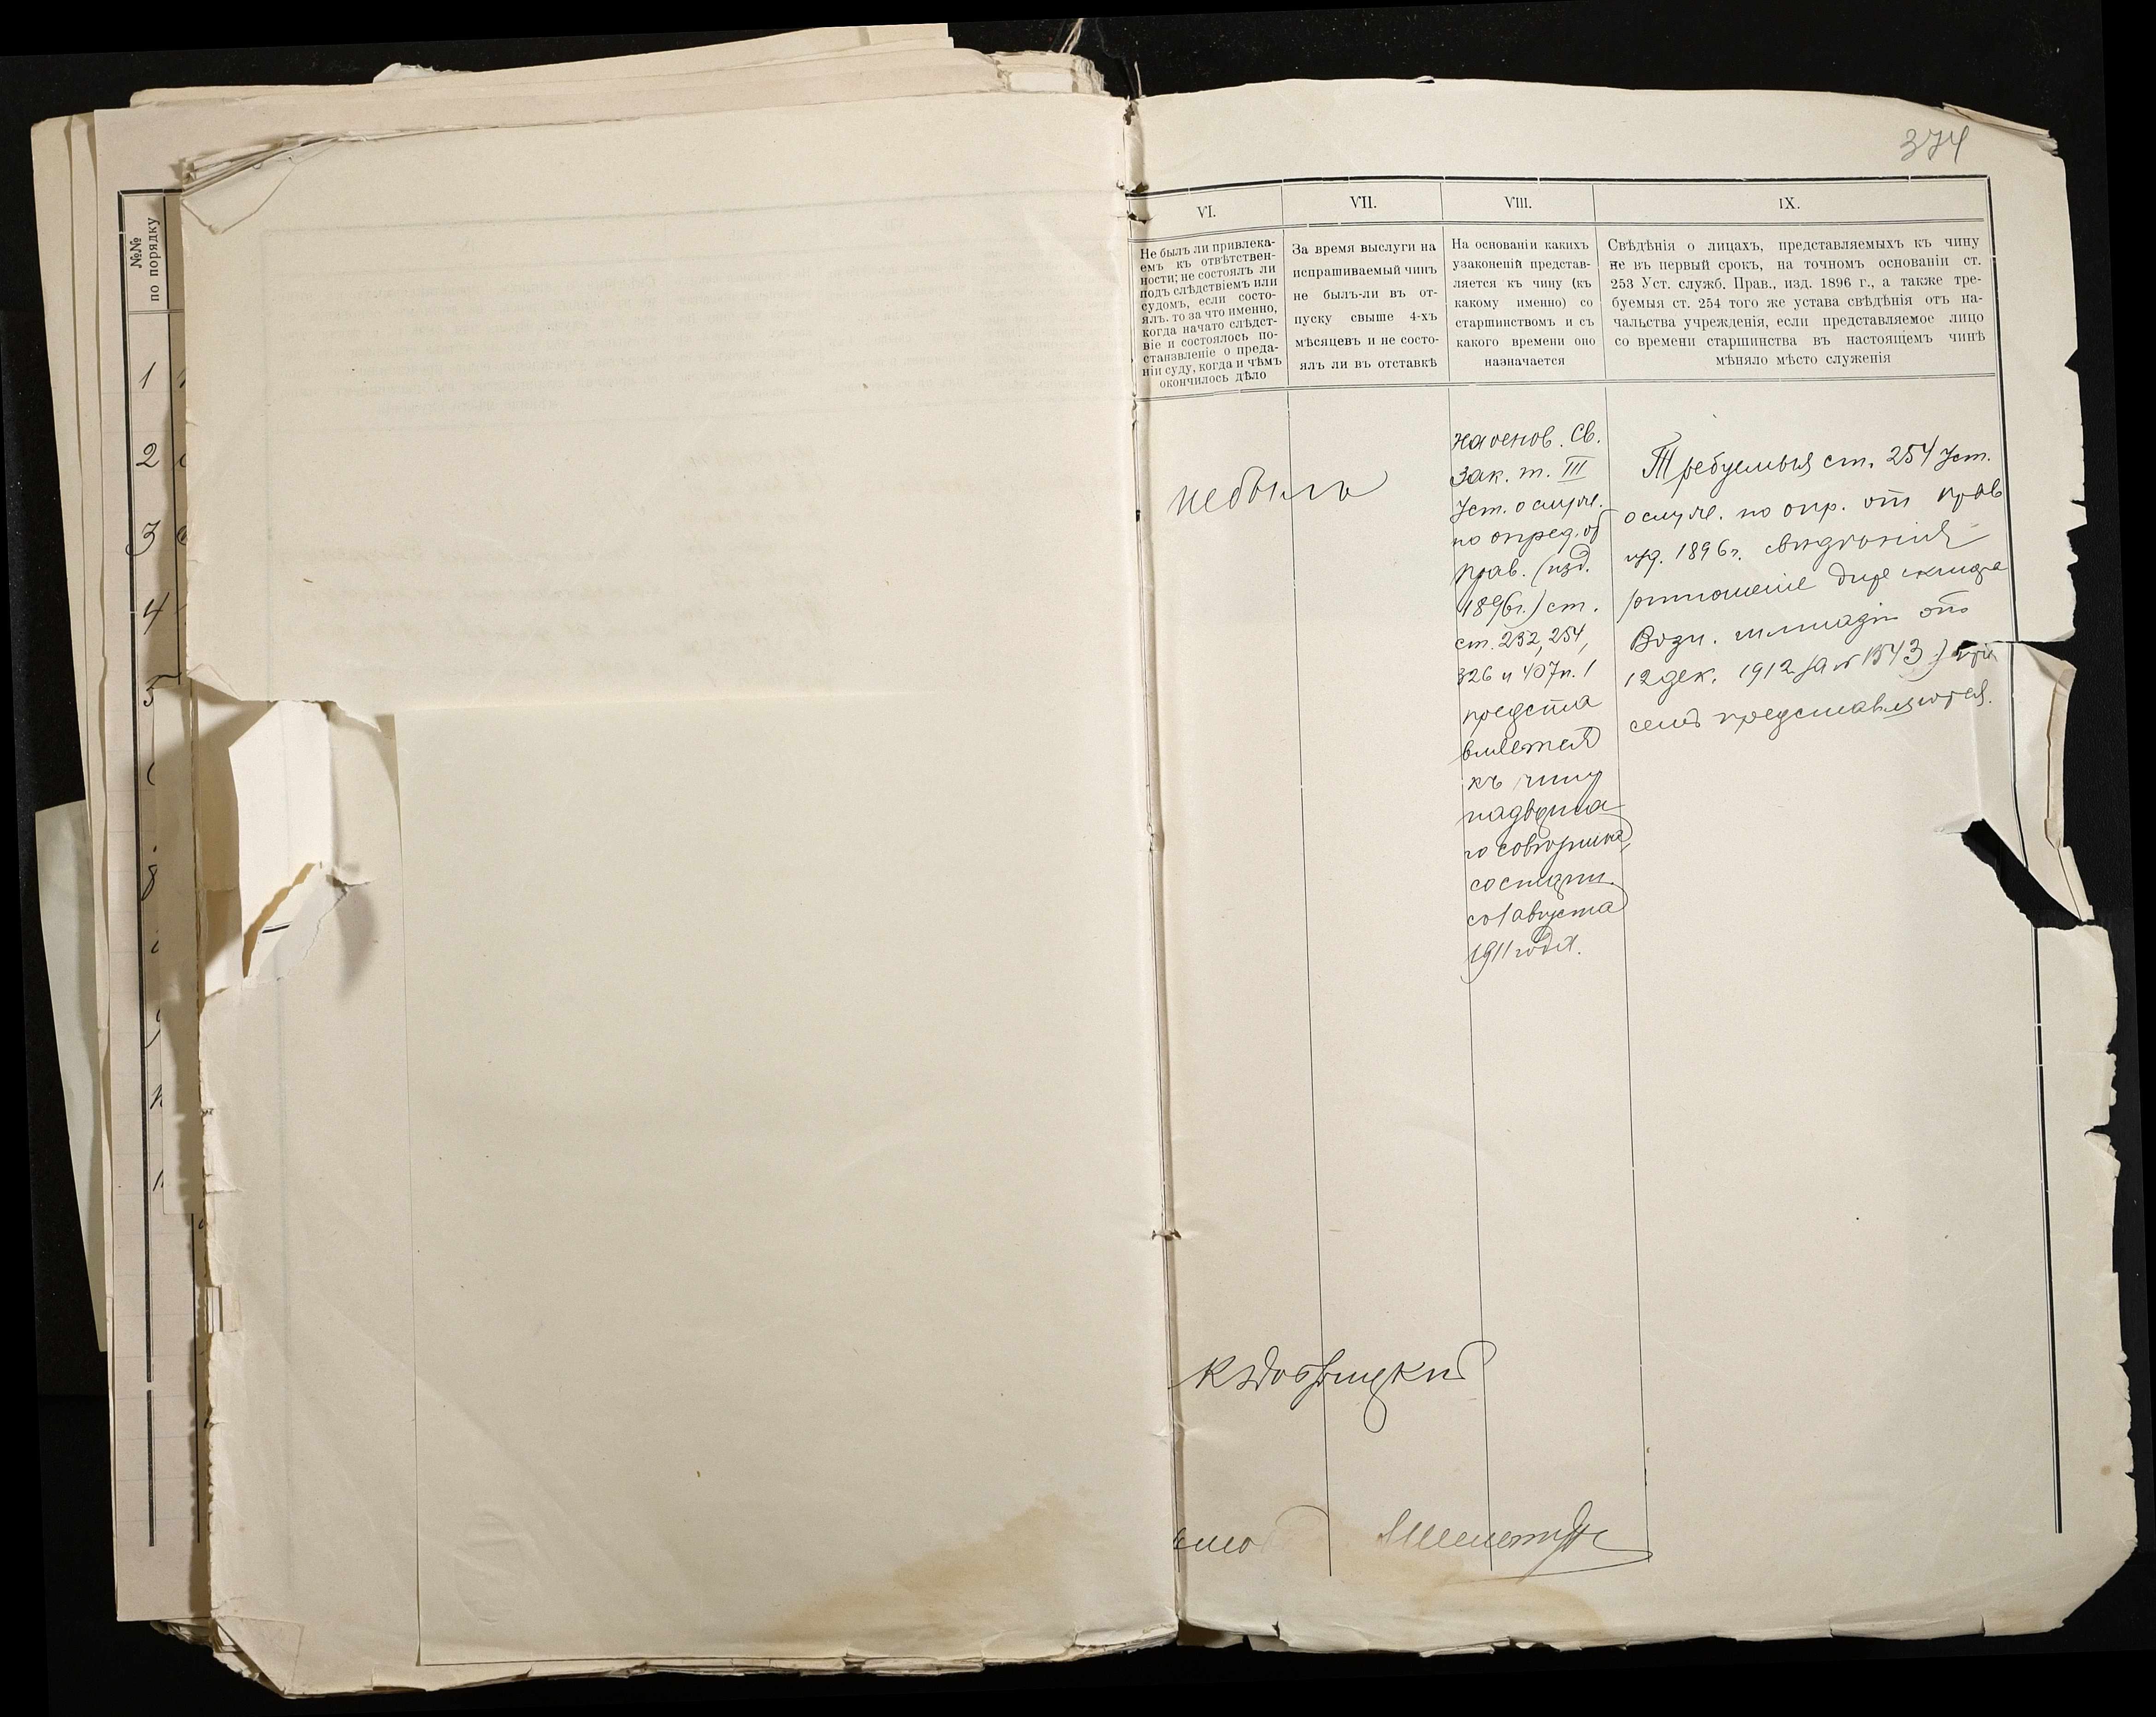 374
№№
по порядку
1
2
3
4
5
VI.
Не былъ ли привлека-
емъ къ отвѣтствен-
ности; не состоялъ ли
подъ слѣдствіемъ или
судомъ, если состо-
ялъ. то за что именно,
когда начато слѣдст-
віе и состоялось по-
становленіе о преда-
ніи суду, когда и чѣмъ
окончилось дѣло
VII.
За время выслуги на
испрашиваемый чинъ
не былъ-ли въ от-
пуску свыше 4-хъ
мѣсяцевъ и не состо-
ялъ ли въ отставкѣ
VIII.
На основаніи какихъ
узаконеній представ-
ляется къ чину (къ
какому именно) со
старшинствомъ и съ
какого времени оно
назначается
IX.
Свѣдѣнія о лицахъ, представляемыхъ къ чину
не въ первый срокъ, на точномъ основаніи ст.
253 Уст. служб. Прав., изд. 1896 г., а также тре-
буемыя ст. 254 того же устава свѣдѣнія отъ на-
чальства учрежденія, если представляемое лицо
со времени старшинства въ настоящемъ чинѣ
мѣняло мѣсто служенія
не былъ
На основ. Св.
Зак. т. III
Уст. о служ.
по опред. от
прав. (изд.
1896 г.) ст.
ст. 232, 254,
326 и 407 п. 1
предста
вляется
къ чину
надворна
го совѣтника,
со старш.
со 1 августа
1911 года.
Требуемыя ст. 254 Уст.
о служ. по опр. от прав
изд. 1896 г. свѣдѣнія
(отношеніе директора
Возн. гимназіи отъ
12 дек. 1912 за № 1543) при
семъ представляются.